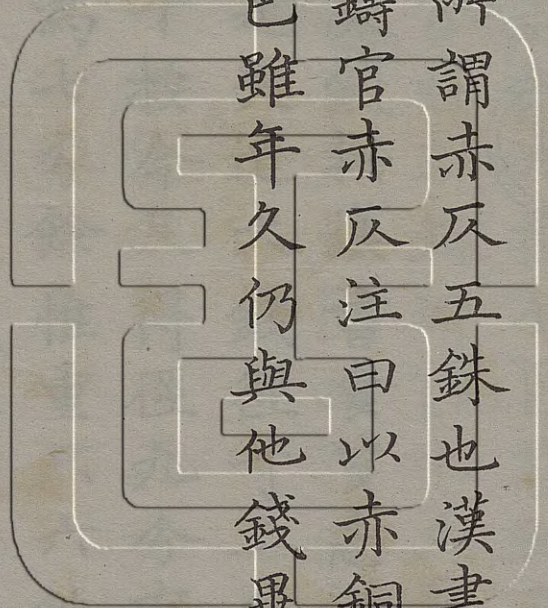 所謂赤仄五銖也漢書
鑄官赤仄注曰以赤銅
色雖年久仍與他錢異